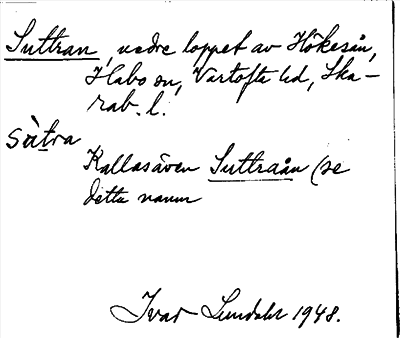 Suttran, nedre loppet av Hökesån,
Habo sn, Vartofta hd, Ska-
rab. l.
sȧtra
Kallas även Suttraån (se
detta namn
Ivar Lundahl 1948.